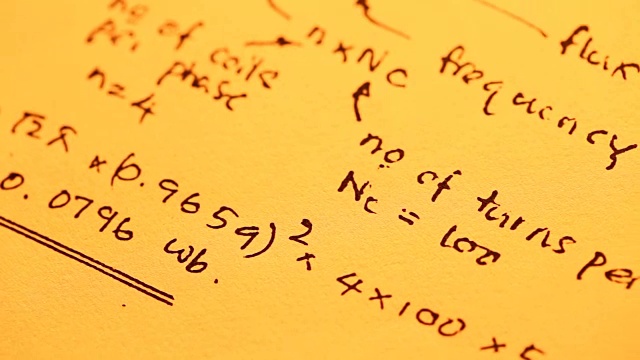 no of coils
per phase
n=4
n×Nc
flux
frequency
no of turns per
Nc = 100
√2π ×(0.9659)² × 4×100 ×
0.0796 wb.